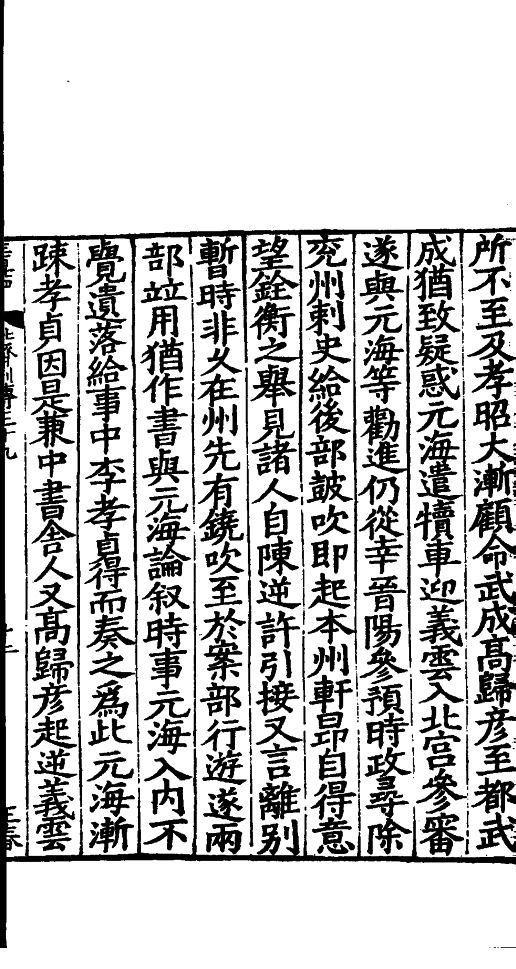 所不至及孝昭大漸顧命武成髙歸彦至都武
成猶致疑惑元海遣犢車迎義雲入北宫參審
遂與元海等勸進仍從幸晉陽參預時政尋除
兖州刺史給後部鼓吹即起本州軒昂自得意
望銓衡之舉見諸人自陳逆許引接又言離别
暫時非乆在州先有鐃吹至於案部行遊遂兩
部竝用猶作書與元海論叙時事元海入内不
覺遺落給事中李孝貞得而奏之爲此元海漸
踈孝貞因是兼中書舎人又髙歸彦起逆義雲